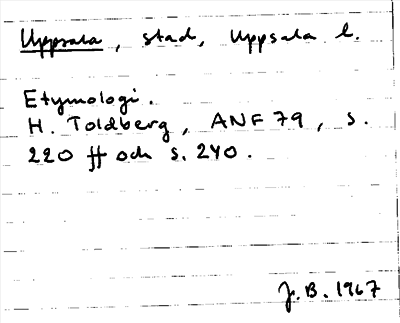 Uppsala, stad, Uppsala l.
Etymologi.
H. Toldberg, ANF 79, s.
220 ff och s. 240.
J.B. 1967